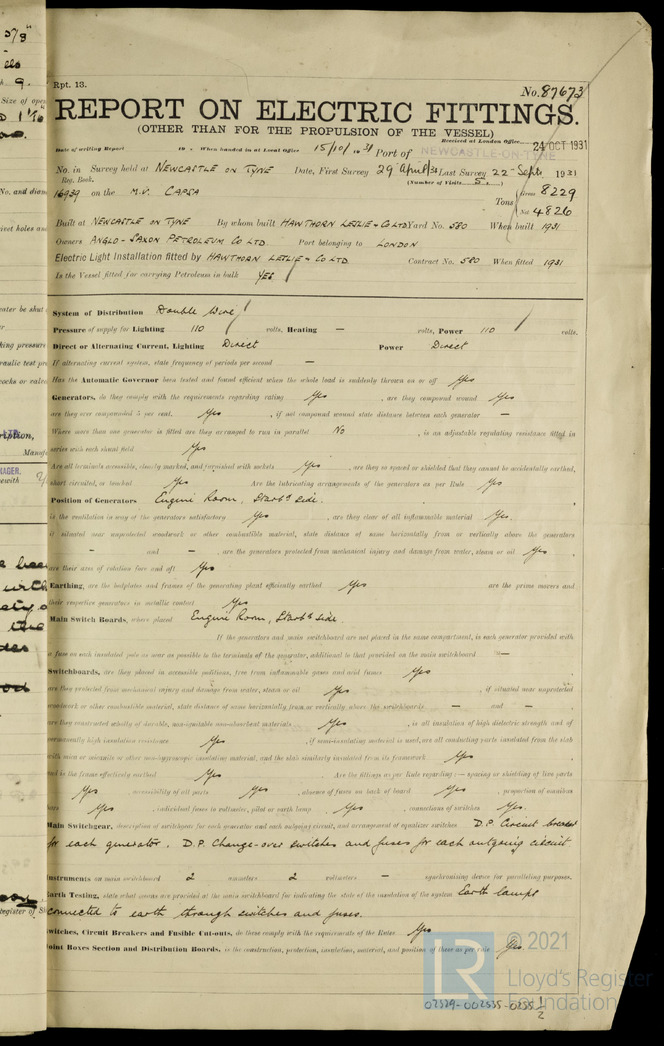 Rpt. 13.
No. 87673
REPORT ON ELECTRIC FITTINGS.
(OTHER THAN FOR THE PROPULSION OF THE VESSEL)
Received at London Office
Date of writing Report 19 . When handed in at Local Office 15/10/1931 Port of NEWCASTLE-ON-TYNE 24 OCT 1931
No. in Survey held at NEWCASTLE ON TYNE Date, First Survey 29 April 31 Last Survey 22 Sept. 1931
Reg. Book. (Number of Visits 5.)
16939 on the M.V. CAPSA Tons Gross 8229
Net 4826
Built at NEWCASTLE ON TYNE By whom built HAWTHORN LESLIE & CO LTD Yard No. 580 When built 1931
Owners ANGLO-SAXON PETROLEUM CO LTD. Port belonging to LONDON
Electric Light Installation fitted by HAWTHORN LESLIE & CO LTD. Contract No. 580 When fitted 1931
Is the Vessel fitted for carrying Petroleum in bulk YES
System of Distribution Double Wire
Pressure of supply for Lighting 110 volts, Heating — volts, Power 110 volts.
Direct or Alternating Current, Lighting Direct Power Direct
If alternating current system, state frequency of periods per second —
Has the Automatic Governor been tested and found efficient when the whole load is suddenly thrown on or off Yes
Generators, do they comply with the requirements regarding rating Yes , are they compound wound Yes
are they over compounded 5 per cent. Yes , if not compound wound state distance between each generator —
Where more than one generator is fitted are they arranged to run in parallel No , is an adjustable regulating resistance fitted in
series with each shunt field Yes
Are all terminals accessible, clearly marked, and furnished with sockets Yes , are they so spaced or shielded that they cannot be accidentally earthed,
short circuited, or touched Yes Are the lubricating arrangements of the generators as per Rule Yes
Position of Generators Engine Room, Starbd side.
is the ventilation in way of the generators satisfactory Yes , are they clear of all inflammable material Yes.
if situated near unprotected woodwork or other combustible material, state distance of same horizontally from or vertically above the generators
— and — , are the generators protected from mechanical injury and damage from water, steam or oil Yes ,
are their axes of rotation fore and aft Yes
Earthing, are the bedplates and frames of the generating plant efficiently earthed Yes are the prime movers and
their respective generators in metallic contact Yes
Main Switch Boards, where placed Engine Room, Starbd side.
If the generators and main switchboard are not placed in the same compartment, is each generator provided with
a fuse on each insulated pole as near as possible to the terminals of the generator, additional to that provided on the main switchboard —
Switchboards, are they placed in accessible positions, free from inflammable gases and acid fumes Yes
are they protected from mechanical injury and damage from water, steam or oil Yes , if situated near unprotected
woodwork or other combustible material, state distance of same horizontally from or vertically above the switchboards — and —
are they constructed wholly of durable, non-ignitable non-absorbent materials Yes , is all insulation of high dielectric strength and of
permanently high insulation resistance Yes , if semi-insulating material is used, are all conducting parts insulated from the slab
with mica or micanite or other non-hygroscopic insulating material, and the slab similarly insulated from its framework Yes
and is the frame effectively earthed Yes Are the fittings as per Rule regarding:— spacing or shielding of live parts
Yes , accessibility of all parts Yes , absence of fuses on back of board Yes , proportion of omnibus
bars Yes , individual fuses to voltmeter, pilot or earth lamp Yes , connections of switches Yes
Main Switchgear, description of switchgear for each generator and each outgoing circuit, and arrangement of equalizer switches D.P. Circuit breaker
for each generator. D.P. Change-over switches and fuses for each outgoing circuit
Instruments on main switchboard 2 ammeters 2 voltmeters — synchronising device for paralleling purposes.
Earth Testing, state what means are provided at the main switchboard for indicating the state of the insulation of the system Earth lamps
connected to earth through switches and fuses.
Switches, Circuit Breakers and Fusible Cut-outs, do these comply with the requirements of the Rules Yes
Joint Boxes Section and Distribution Boards, is the construction, protection, insulation, material, and position of these as per rule Yes.
LR © 2021
Lloyd's Register
Foundation
02329-002535-0255 1/2